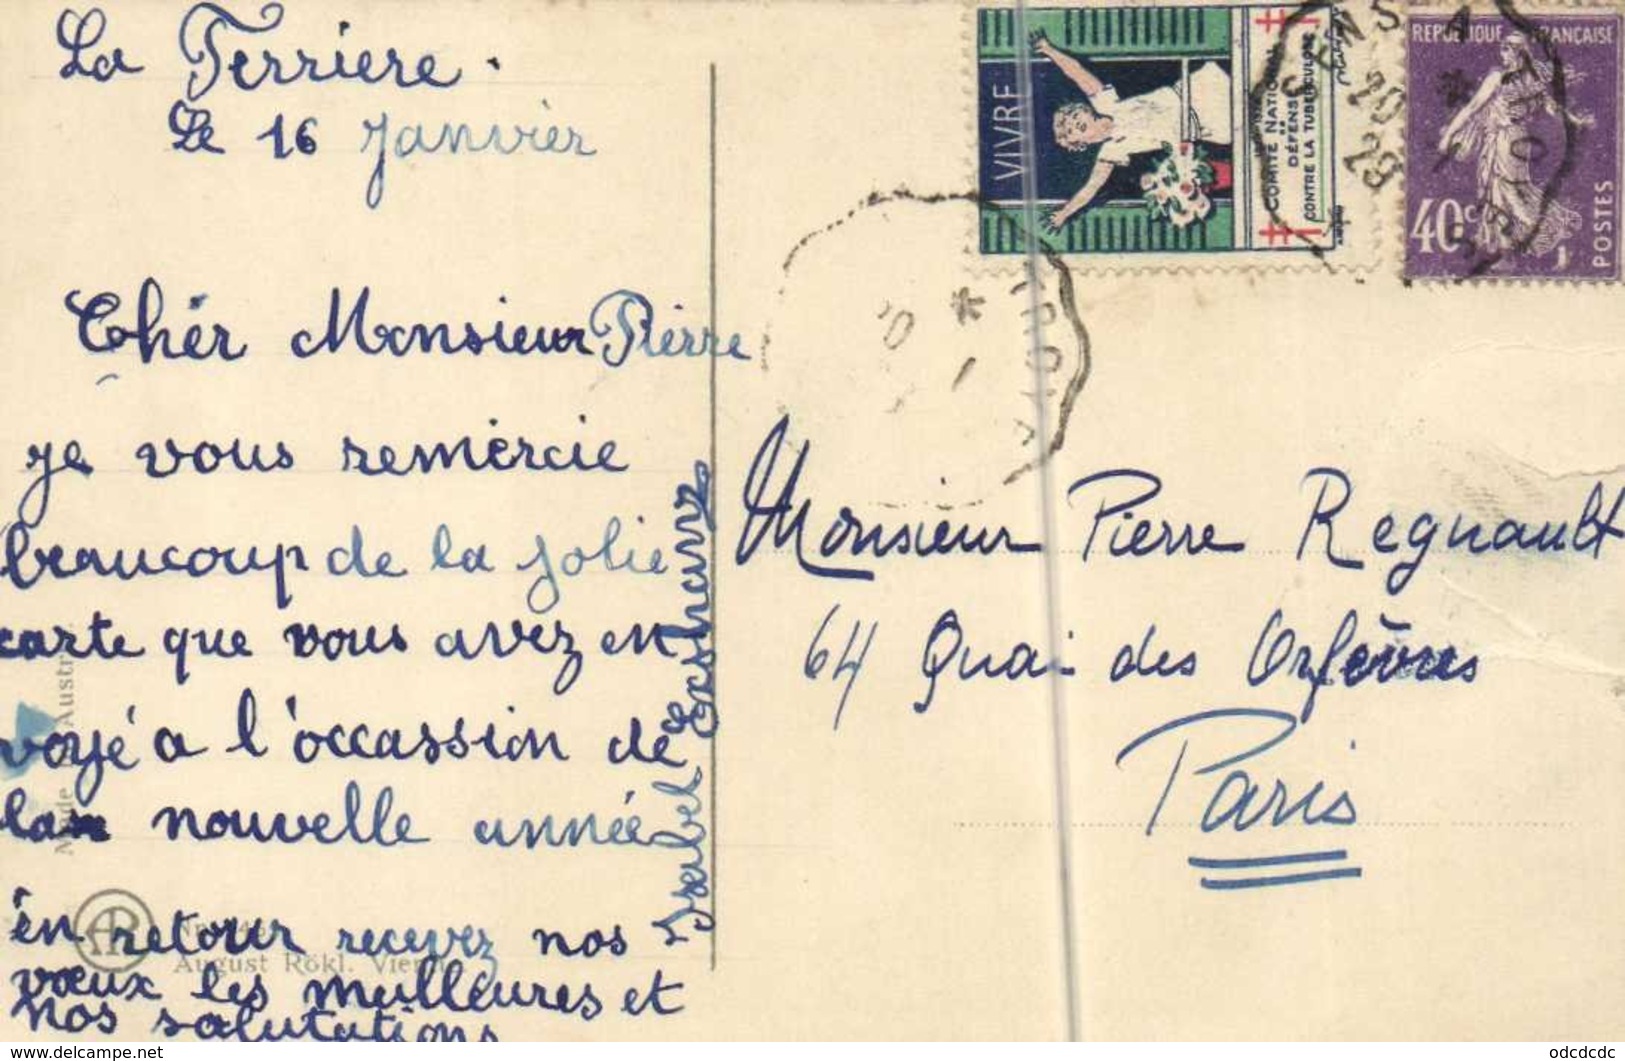 La Ferriere.
Le 16 Janvier
Chér Monsieur Pierre
je vous remercie
beaucoup de la jolie
carte que vous avez en
voyé a l'occassion de
la nouvelle année
en retour recevez nos
vœux les meilleures et
nos salutations
Isabel
Monsieur Pierre Regnault
64 Quai des Orfèvres
Paris
VIVRE
COMITÉ NATIONAL
DE
DÉFENSE
CONTRE LA TUBERCULOSE
REPUBLIQUE FRANÇAISE
40c
POSTES
SENS A TROYES
20
1
29
August Rökl. Vienn
https://www.delcampe.net
odcdcdc